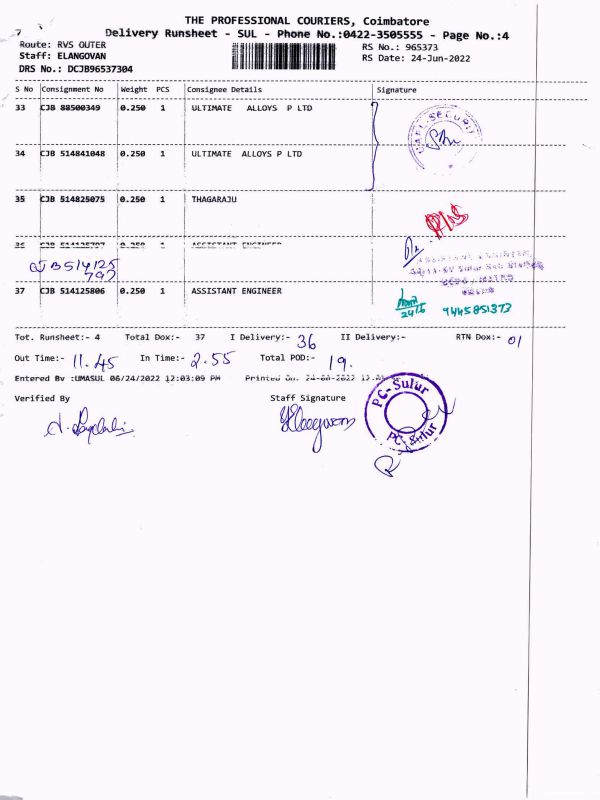 THE PROFESSIONAL COURIERS, Coimbatore
7 Delivery Runsheet - SUL - Phone No.:0422-3505555 - Page No.:4
Route: RVS OUTER RS No.: 965373
Staff: ELANGOVAN RS Date: 24-Jun-2022
DRS No.: DCJB96537304
S No Consignment No Weight PCS Consignee Details Signature
33 CJB 88500349 0.250 1 ULTIMATE ALLOYS P LTD
34 CJB 514841048 0.250 1 ULTIMATE ALLOYS P LTD
35 CJB 514825075 0.250 1 THAGARAJU
36 CJB 514125797 0.250 1 ASSISTANT ENGINEER
CJB 514125
797
37 CJB 514125806 0.250 1 ASSISTANT ENGINEER
24/6 9445851373
Tot. Runsheet:- 4 Total Dox:- 37 I Delivery:- 36 II Delivery:- RTN Dox:- 01
Out Time:- 11.45 In Time:- 2.55 Total POD:- 19.
Entered By :UMASUL 06/24/2022 12:03:09 PM Printed On.
Verified By Staff Signature
PC-Sulur
PC-Sulur